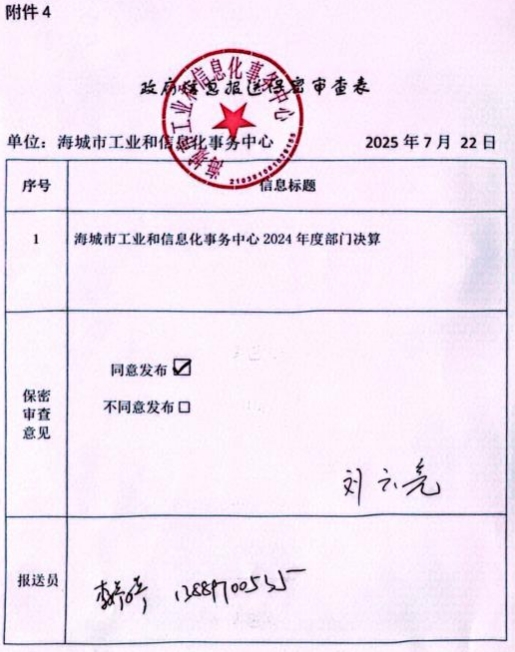 附件4
政府信息报送保密审查表
海城市工业和信息化事务中心
单位：海城市工业和信息化事务中心 2025年7月22日
序号 信息标题
1 海城市工业和信息化事务中心2024年度部门决算
保密审查意见
同意发布☑
不同意发布□
刘云亮
报送员